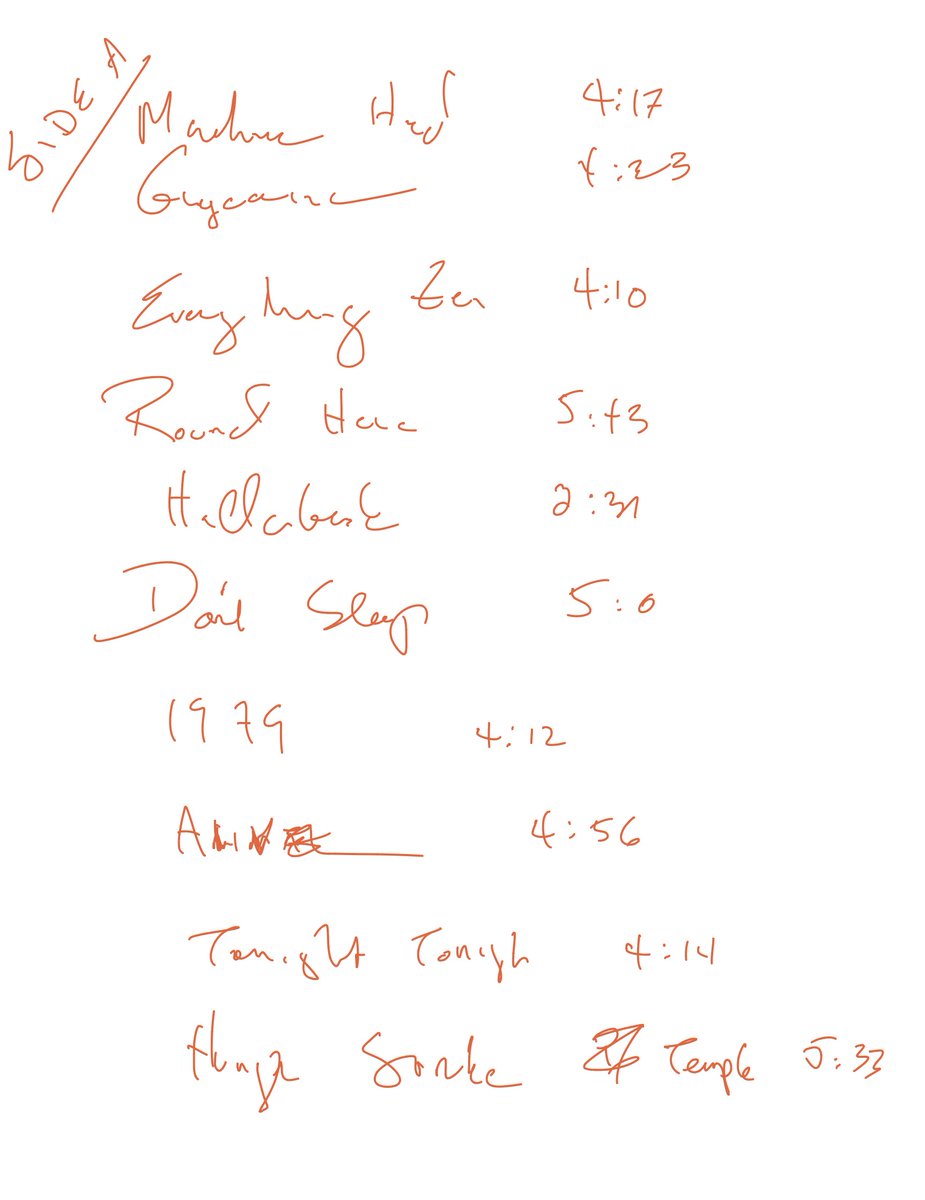 SIDE A
Machine Head 4:17
Glycerine 4:23
Everything Zen 4:10
Round Here 5:43
Hollaback 2:31
Don't Sleep 5:0
1979 4:12
4:56
Tonight Tonight 4:14
Hunger Strike Temple 5:33